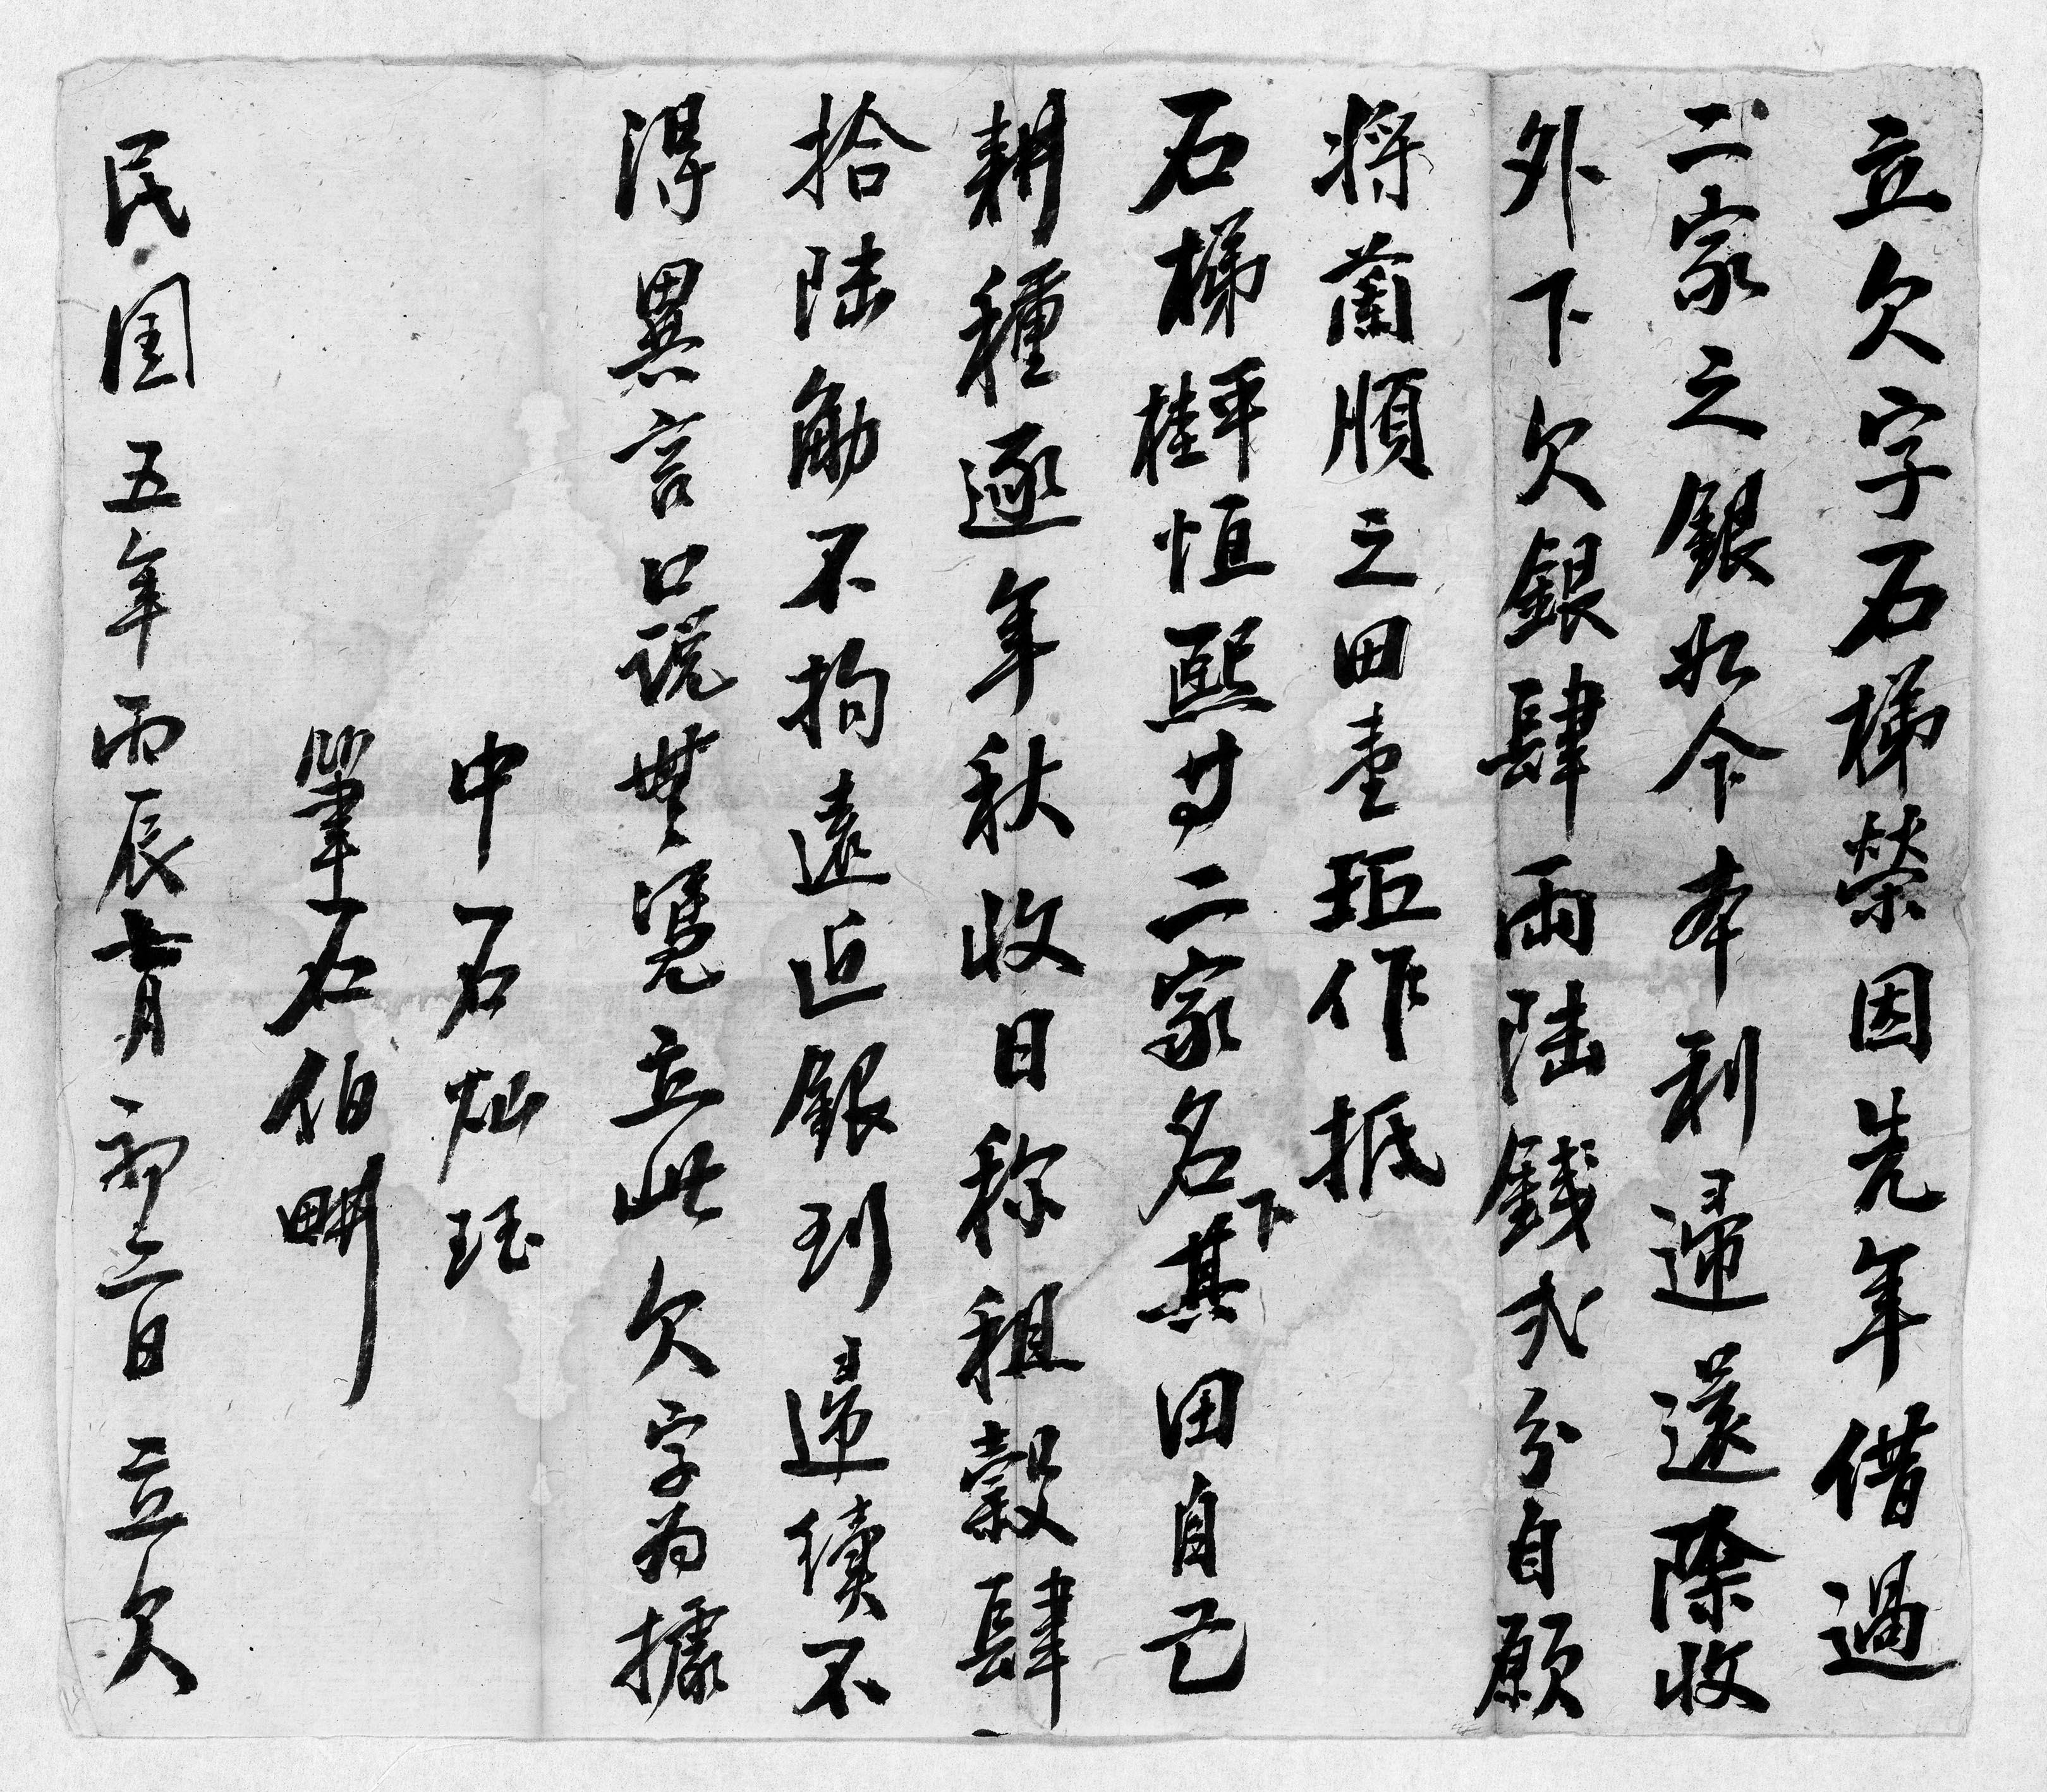 立欠字石梯榮因先年借過
二家之銀於今本利歸還除收
外下欠銀肆兩陸錢弍分自願
將蘭順之田壹坵作抵
石梯桂平恒熙廿二家名下其田自己
耕種逐年秋收日称租穀肆
拾陸觔不拘遠近銀到歸續不
得異言口說無憑立此欠字為據
中石灿珏
筆石伯畊
民国五年丙辰七月初二日立欠